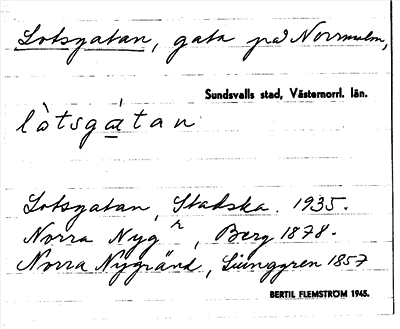 Lotsgatan, gata på Norrmalm,
Sundsvalls stad, Västernorrl. län.
lòtsgátan
Lotsgatan, Stadska. 1935.
Norra Nygr, Berg 1878.
Norra Nygränd, Ljunggren 1857
BERTIL FLEMSTRÖM 1945.